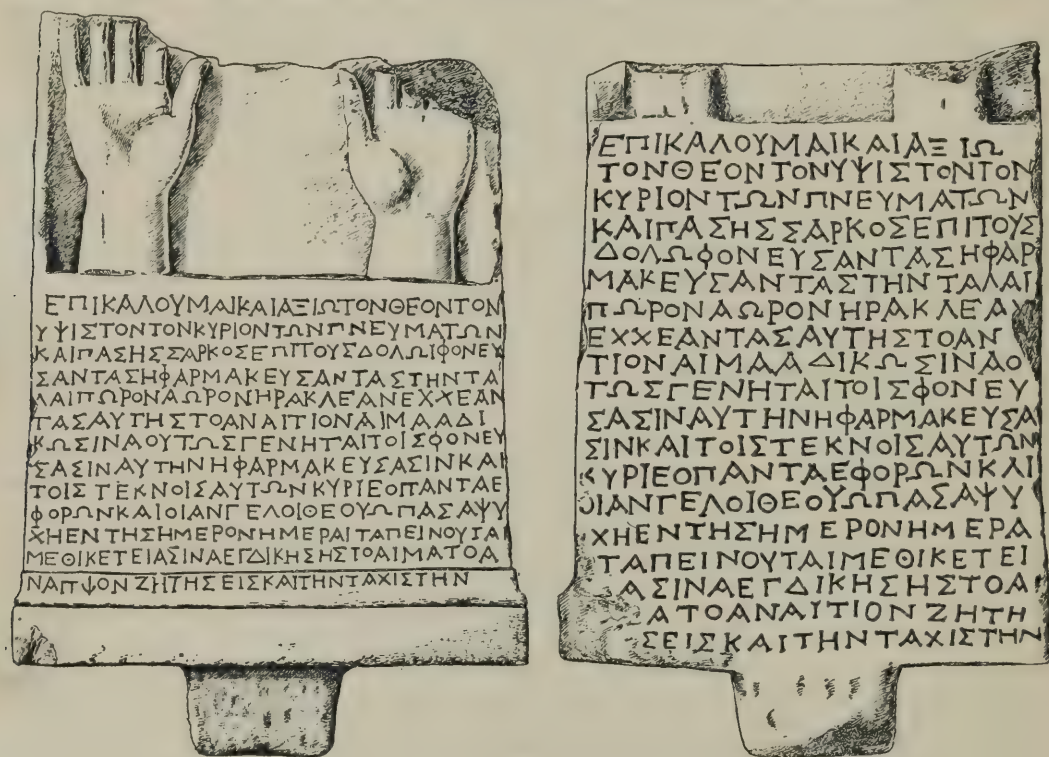 ΕΠΙΚΑΛΟΥΜΑΙΚΑΙΑΞΙΩΤΟΝΘΕΟΝΤΟΝ
ΥΨΙΣΤΟΝΤΟΝΚΥΡΙΟΝΤΩΝΠΝΕΥΜΑΤΩΝ
ΚΑΙΠΑΣΗΣΣΑΡΚΟΣΕΠΙΤΟΥΣΔΟΛΩΙΦΟΝΕΥ
ΣΑΝΤΑΣΗΦΑΡΜΑΚΕΥΣΑΝΤΑΣΤΗΝΤΑ
ΛΑΙΠΩΡΟΝΑΩΡΟΝΗΡΑΚΛΕΑΝΕΧΧΕΑΝ
ΤΑΣΑΥΤΗΣΤΟΑΝΑΙΤΙΟΝΑΙΜΑΑΔΙ
ΚΩΣΙΝΑΟΥΤΩΣΓΕΝΗΤΑΙΤΟΙΣΦΟΝΕΥ
ΣΑΣΙΝΑΥΤΗΝΗΦΑΡΜΑΚΕΥΣΑΣΙΝΚΑΙ
ΤΟΙΣΤΕΚΝΟΙΣΑΥΤΩΝΚΥΡΙΕΟΠΑΝΤΑΕ
ΦΟΡΩΝΚΑΙΟΙΑΝΓΕΛΟΙΘΕΟΥΩΠΑΣΑΨΥ
ΧΗΕΝΤΗΣΗΜΕΡΟΝΗΜΕΡΑΙΤΑΠΕΙΝΟΥΤΑΙ
ΜΕΘΙΚΕΤΕΙΑΣΙΝΑΕΓΔΙΚΗΣΗΣΤΟΑΙΜΑΤΟΑ
ΝΑΙΤΙΟΝΖΗΤΗΣΕΙΣΚΑΙΤΗΝΤΑΧΙΣΤΗΝ
ΕΠΙΚΑΛΟΥΜΑΙΚΑΙΑΞΙΩ
ΤΟΝΘΕΟΝΤΟΝΥΨΙΣΤΟΝΤΟΝ
ΚΥΡΙΟΝΤΩΝΠΝΕΥΜΑΤΩΝ
ΚΑΙΠΑΣΗΣΣΑΡΚΟΣΕΠΙΤΟΥΣ
ΔΟΛΩΦΟΝΕΥΣΑΝΤΑΣΗΦΑΡ
ΜΑΚΕΥΣΑΝΤΑΣΤΗΝΤΑΛΑΙ
ΠΩΡΟΝΑΩΡΟΝΗΡΑΚΛΕΑ
ΕΧΧΕΑΝΤΑΣΑΥΤΗΣΤΟΑΝ
ΤΙΟΝΑΙΜΑΑΔΙΚΩΣΙΝΑΟ
ΤΩΣΓΕΝΗΤΑΙΤΟΙΣΦΟΝΕΥ
ΣΑΣΙΝΑΥΤΗΝΗΦΑΡΜΑΚΕΥΣΑ
ΣΙΝΚΑΙΤΟΙΣΤΕΚΝΟΙΣΑΥΤΩΝ
ΚΥΡΙΕΟΠΑΝΤΑΕΦΟΡΩΝΚΑΙ
ΟΙΑΝΓΕΛΟΙΘΕΟΥΩΠΑΣΑΨΥ
ΧΗΕΝΤΗΣΗΜΕΡΟΝΗΜΕΡΑ
ΤΑΠΕΙΝΟΥΤΑΙΜΕΘΙΚΕΤΕΙ
ΑΣΙΝΑΕΓΔΙΚΗΣΗΣΤΟΑ
ΑΤΟΑΝΑΙΤΙΟΝΖΗΤΗ
ΣΕΙΣΚΑΙΤΗΝΤΑΧΙΣΤΗΝ